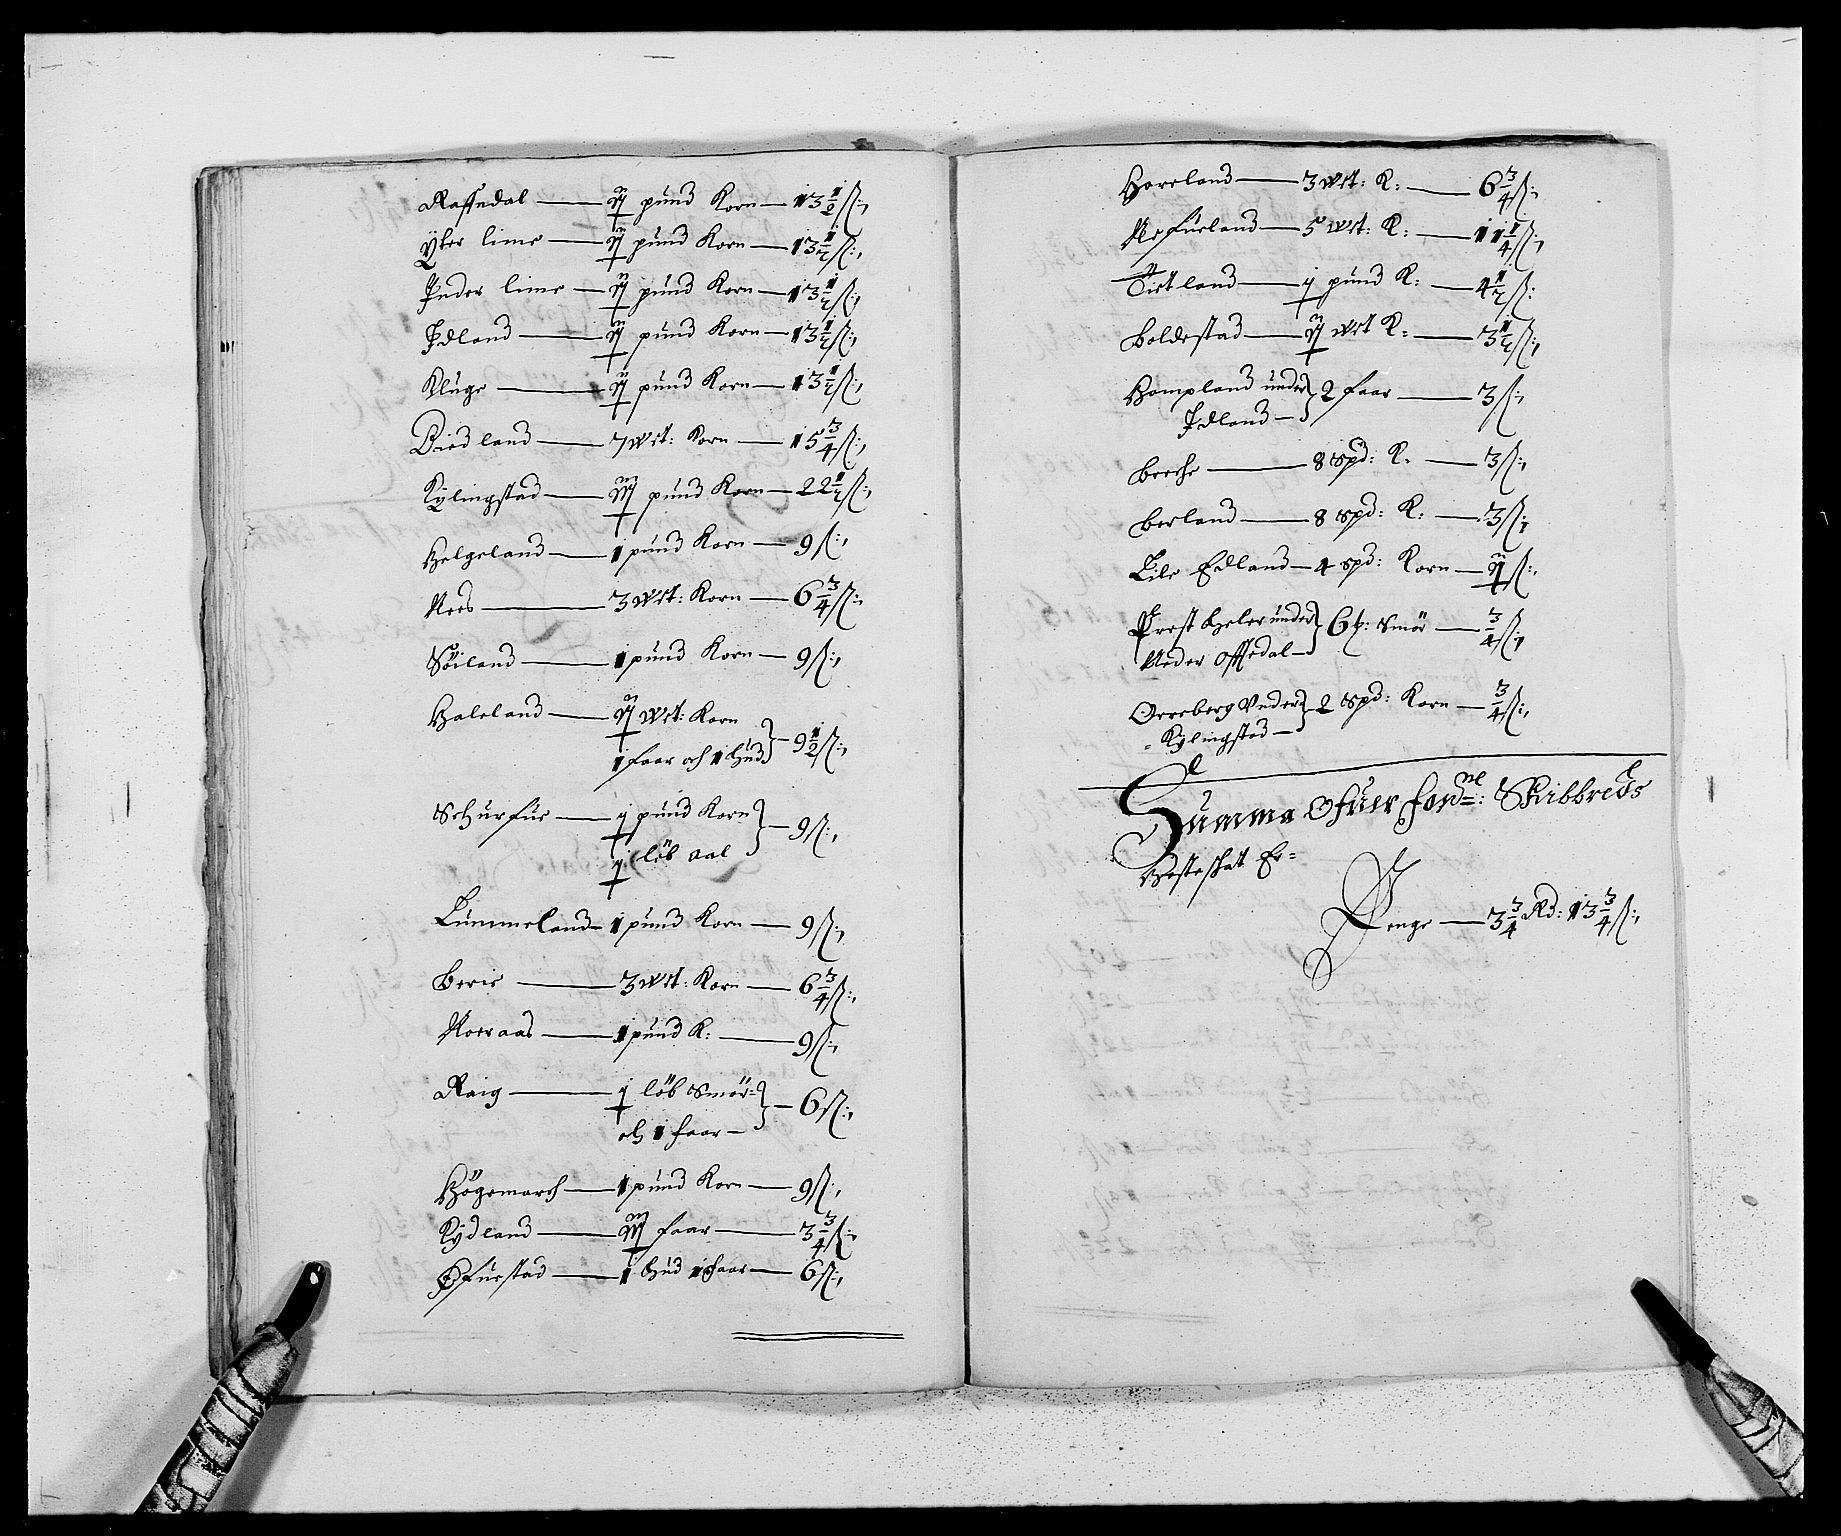 Raffsdal — ij pund Korn — 13 1/2 ß:
Ytter lime — ij pund Korn — 13 1/2 ß:
Inder lime — ij pund Korn — 13 1/2 ß:
Idland — ij pund Korn — 13 1/2 ß:
Kluge — ij pund Korn — 13 1/2 ß:
Birdland — 7 wet: Korn — 15 3/4 ß:
Kylingstad — iij pund Korn — 22 1/2 ß:
Helgeland — 1 pund Korn — 9 ß:
Nees — 3 wet: Korn — 6 3/4 ß:
Söiland — 1 pund Korn — 9 ß:
Haleland — ij wet: Korn
1 faar och 1 hud — 9 1/2 ß:
Schurfue — j pund Korn
j löb aal — 9 ß:
Lummeland — 1 pund Korn — 9 ß:
Berie — 3 wet: Korn — 6 3/4 ß:
Moeraas — 1 pund K: — 9 ß:
Raig — j löb Smör
och 1 faar — 6 ß:
Högemarch — 1 pund Korn — 9 ß:
Kydland — iij faar — 3 3/4 ß:
Ofuestad — 1 hud 1 faar — 6 ß:
Hoveland — 3 wet: K: — 6 3/4 ß:
Refsueland — 5 wet: K: — 11 1/4 ß:
Tietland — j pund K: — 4 1/2 ß:
Boldestad — ij wet K: — 3 1/2 ß:
Hompland under
Idland — 2 faar — 3 ß:
Berche — 8 spd: K. — 3 ß:
Berland — 8 spd: K: — 3 ß:
Lile Edland — 4 spd: Korn — ij ß:
Prest heler under
Neder Offsedal — 6 : Smör — 3/4 ß:
Orreberg Under
Kylingstad — 2 Spd: Korn — 3/4 ß:
Summa Ofuer forne: Skibbreds
Hosteskat Er
Penge — 3 3/4 Rd: 13 3/4 ß: